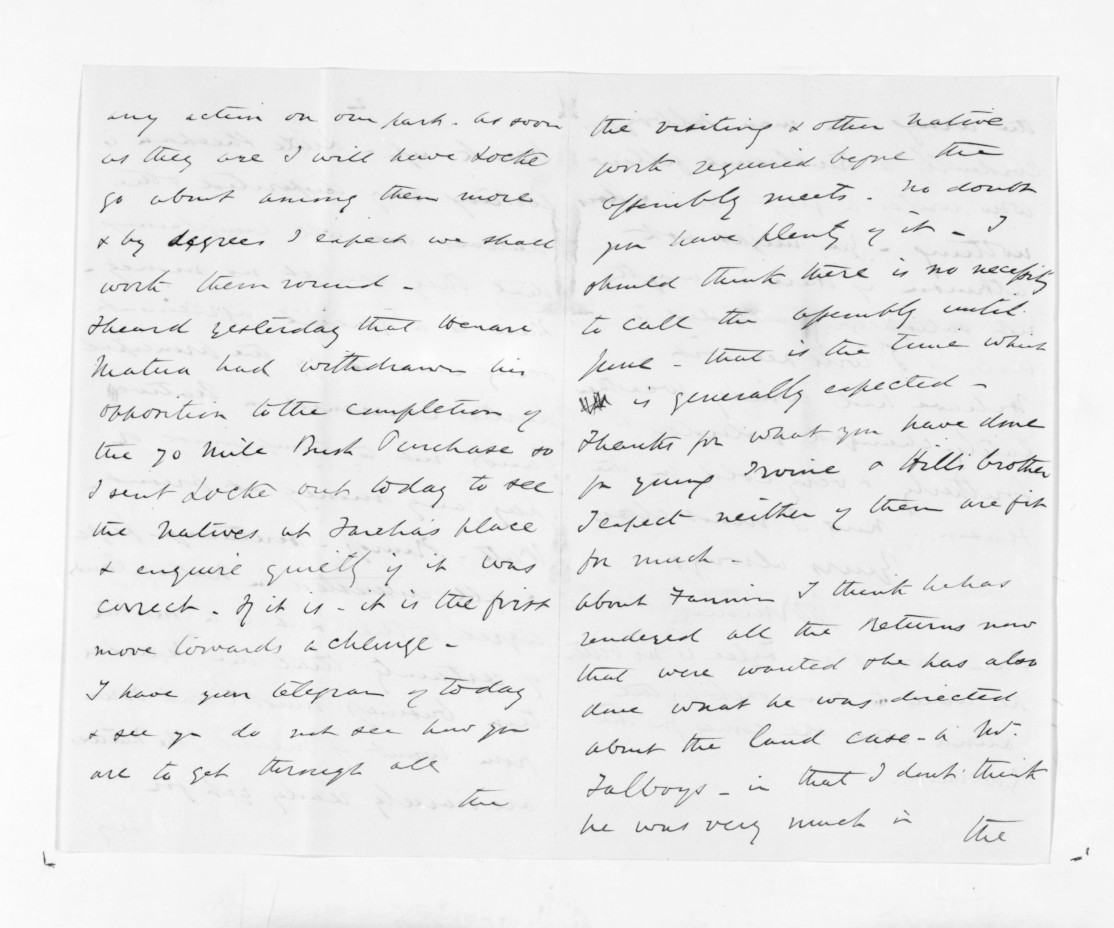 any action on our part. As soon
as they are I will have Locke
go about among them more
& by degrees I expect we shall
work them round -
I heard yesterday that Henare
Matua had withdrawn his
opposition to the completion of
the 70 Mile Bush Purchase so
I sent Locke out today to see
the Natives at Tareha's place
& enquire quietly if it was
correct - If it is - it is the first
move towards a change -
I have your telegram of today
& see you do not see how you
are to get through all
the
the visiting & other Native
work required before the
assembly meets. No doubt
you have plenty of it - I
should think there is no necessity
to call the assembly until
June - that is the time which
is generally expected -
Thanks for what you have done
for young Irvine & Hill's brother
I expect neither of them are fit
for much -
About Fannin I think he has
rendered all the Returns now
that were wanted & he has also
done what he was directed
about the land case - a Wt.
Falboys - in that I dont think
he was very much in
the